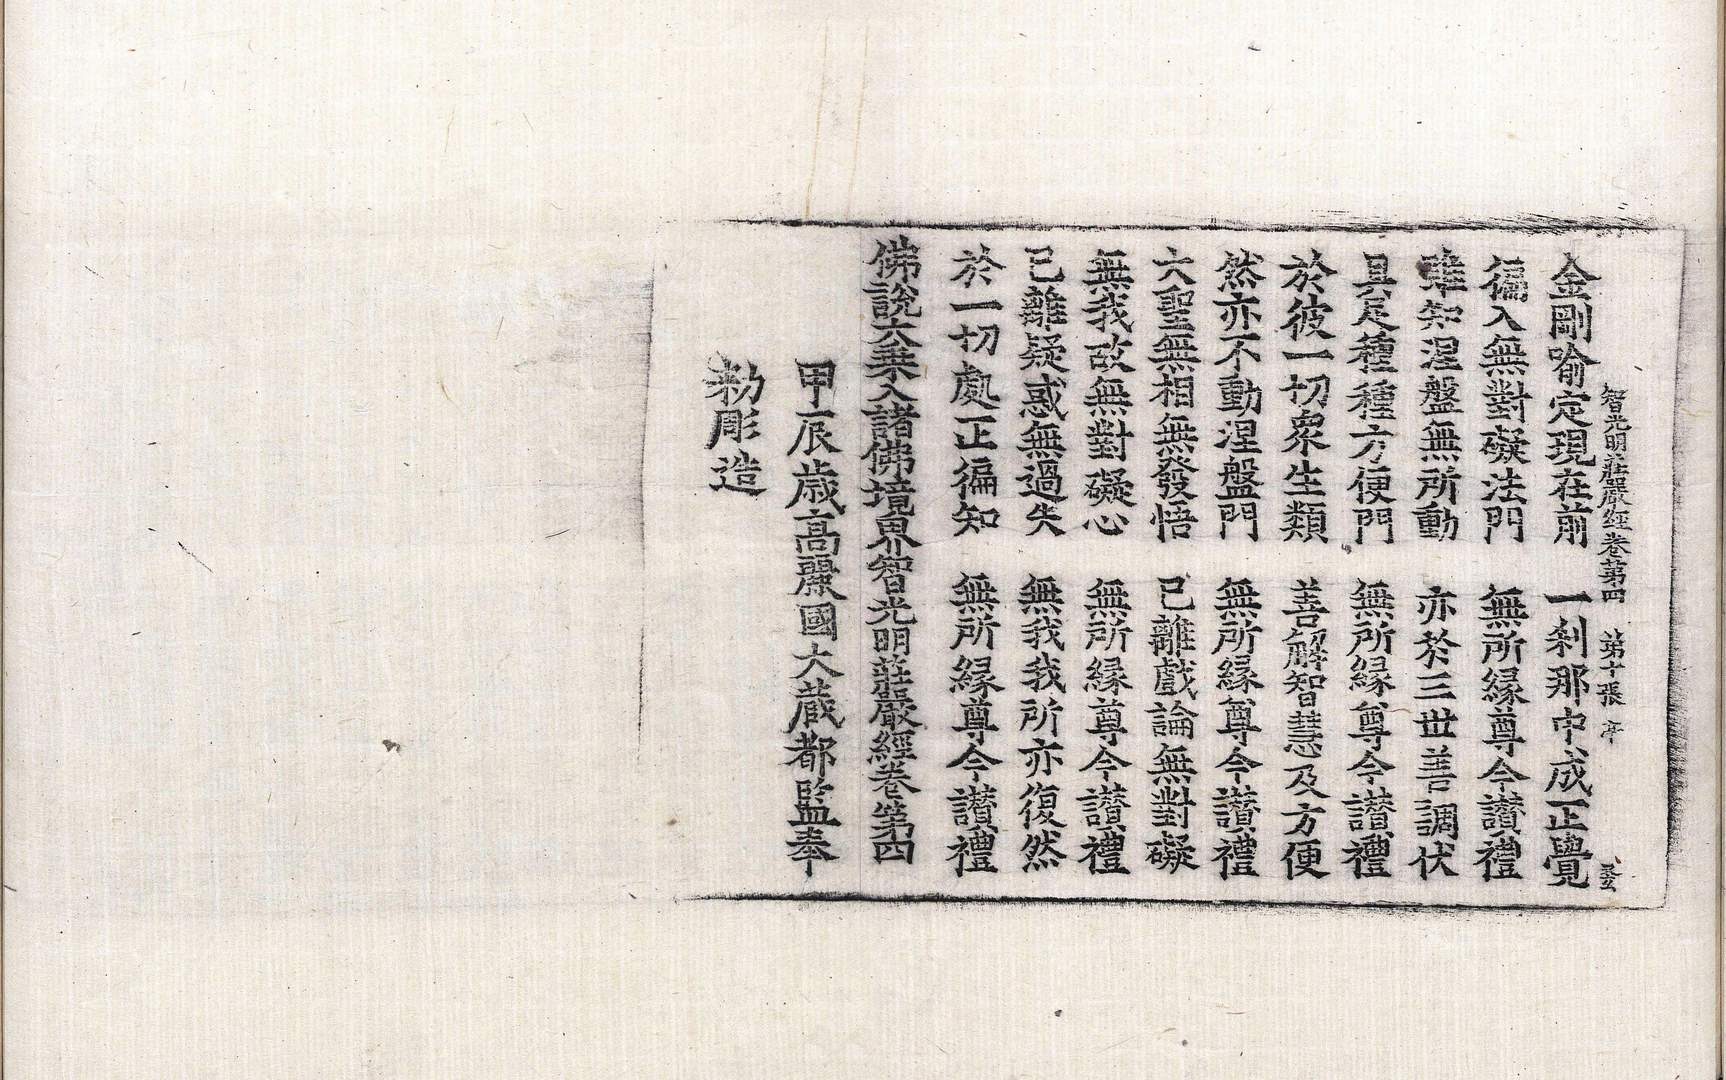 智光明莊嚴經卷第四　第十張　亭
金剛喻定現在前　一刹那中成正覺
徧入無對礙法門　無所緣尊今讃禮
雖知涅盤無所動　亦於三世善調伏
具足種種方便門　無所緣尊今讃禮
於彼一切衆生類　善解智慧及方便
然亦不動涅盤門　無所緣尊今讃禮
大聖無相無發悟　已離戲論無對礙
無我故無對礙心　無所緣尊今讃禮
已離疑惑無過失　無我我所亦復然
於一切處正徧知　無所緣尊今讃禮
佛說大乘入諸佛境界智光明莊嚴經卷第四
甲辰歳高麗國大藏都監奉
勑彫造